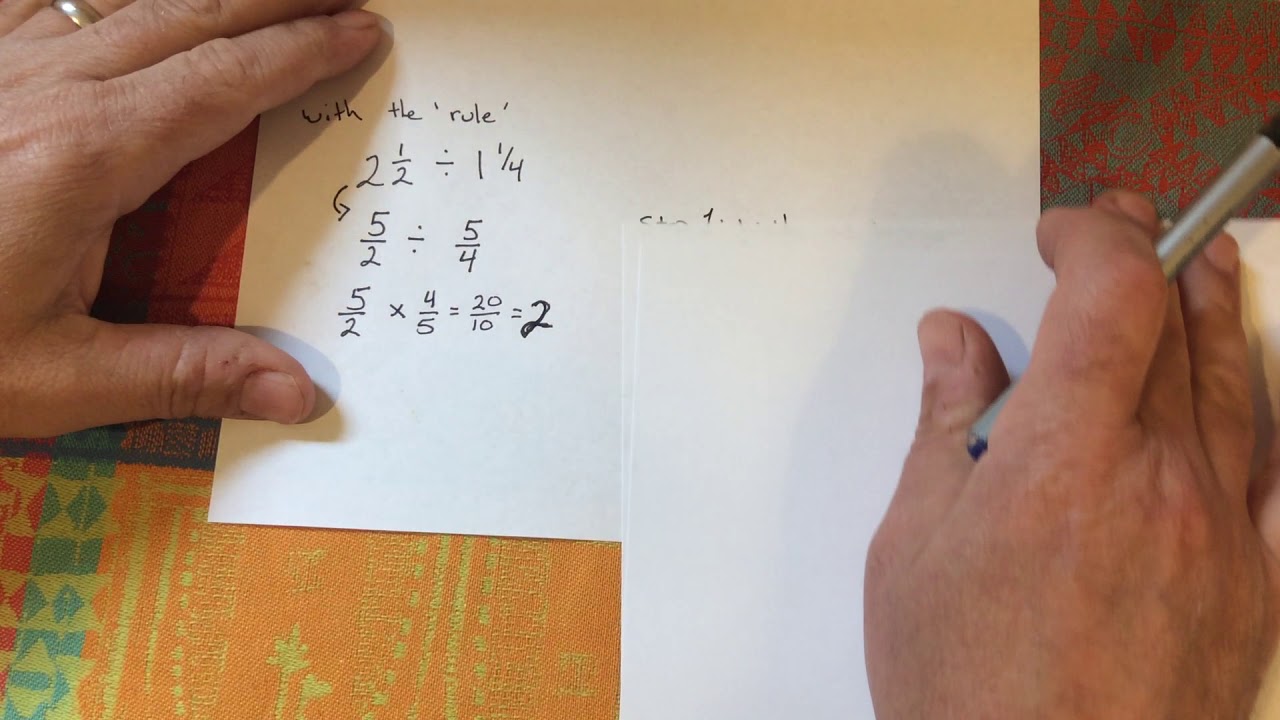 with the 'rule'
2 1/2 ÷ 1 1/4
5/2 ÷ 5/4
5/2 × 4/5 = 20/10 = 2